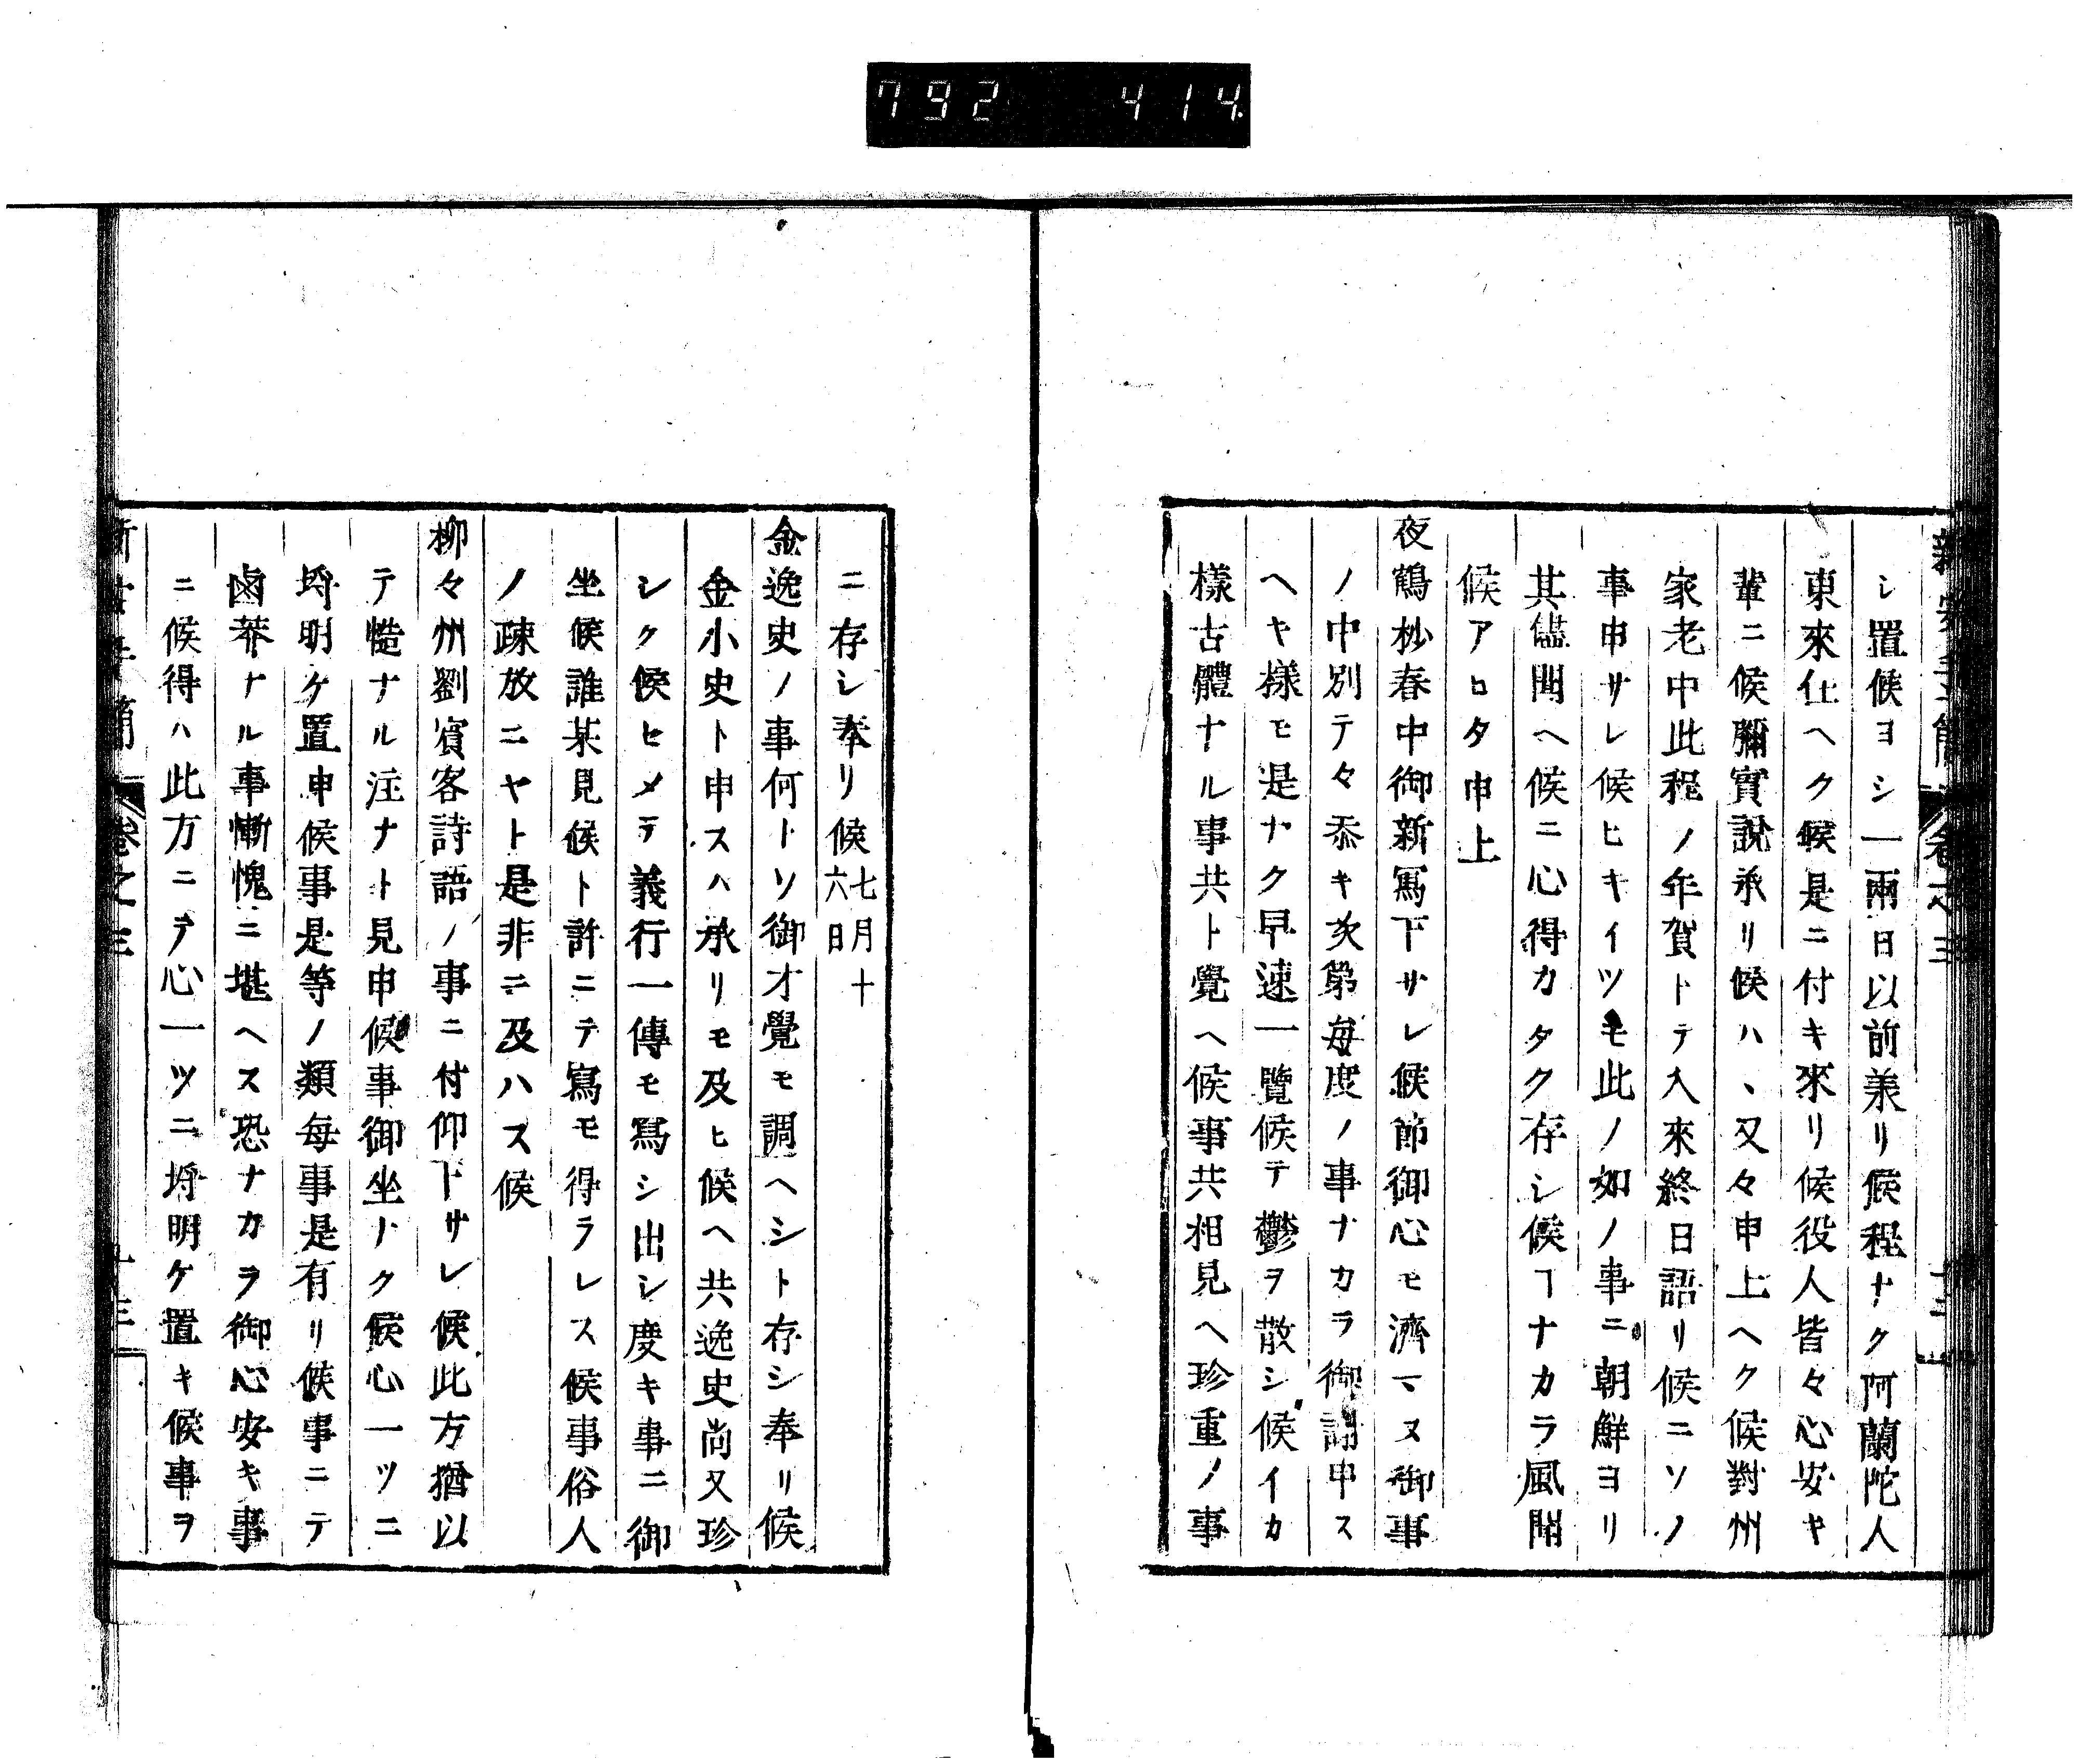 792 414
シ置候ヨシ一兩日以前美リ候程ナク阿蘭陀人
東來仕ヘク候是ニ付キ來リ候役人皆々心安キ
輩ニ候彌實説承リ候ハヽ又々申上ヘク候對州
家老中此程ノ年賀トテ入來終日語リ候ニソノ
事申サレ候ヒキイツモ此ノ如ノ事ニ朝鮮ヨリ
其儘聞ヘ候ニ心得カタク存シ候ヿナカラ風聞
候アヒタ申上
夜鶴抄春中御新寫下サレ候節御心モ濟マヌ御事
ノ中別テ々忝キ次第毎度ノ事ナカラ御謝申ス
ヘキ樣モ是ナク早速一覽候テ鬱ヲ散シ候イカ
樣古體ナル事共ト覺ヘ候事共相見ヘ珍重ノ事
ニ存シ奉リ候七月十六日
金逸史ノ事何トソ御才覺モ調ヘシト存シ奉リ候
金小史ト申スハ承リモ及ヒ候ヘ共逸史尚又珍
シク候セメテ義行一傳モ寫シ出シ度キ事ニ御
坐候誰某見候ト許ニテ寫モ得ラレス候事俗人
ノ疎放ニヤト是非ニ及ハス候
柳々州劉賓客詩語ノ事ニ付仰下サレ候此方猶以
テ慥ナル注ナト見申候事御坐ナク候心一ツニ
埓明ケ置申候事是等ノ類毎事是有リ候事ニテ
鹵莽ナル事慚愧ニ堪ヘス恐ナカラ御心安キ事
ニ候得ハ此方ニテ心一ツニ埓明ケ置キ候事ヲ
卷之三